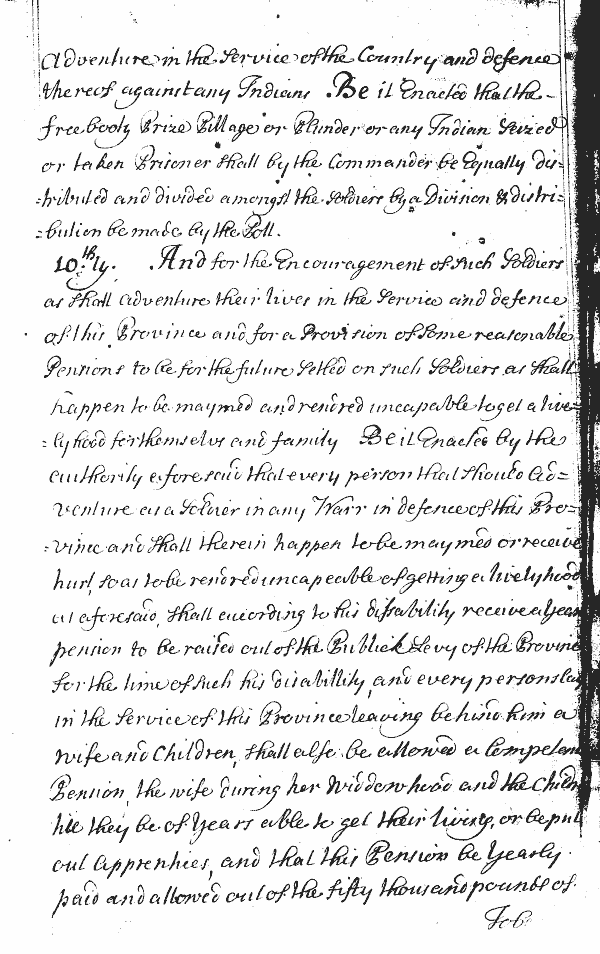 adventure in the Service of the Country and defence
thereof against any Indians Be it Enacted that the
free booty Prize Pillage or Plunder or any Indian Seized
or taken Prisoner shall by the Commander be Equally dis=
=tributed and divided amongst the Soldiers by a Division & distri=
=bution be made by the Poll.
10.thly. And for the Encouragement of such Soldiers
as shall adventure their lives in the Service and defence
of this Province and for a Provision of some reasonable
Pensions to be for the future Setled on such Soldiers as shall
happen to be maymed and rendred uncapable to get a live=
=lyhood for themselves and family Be it Enacted by the
authority aforesaid that every person that should ad=
venture as a Soldier in any Warr in defence of this Pro=
=vince and shall therein happen to be maymed or receive
hurt so as to be rendred uncapeable of getting a livelyhood
as aforesaid, shall according to his dissability receive a Year
pension to be raised out of the Publick Levy of the Province
for the time of such his disabillity, and every person slay
in the Service of this Province leaving behind him a
wife and Children, shall also be allowed a Competent
Pension, the wife during her Widdowhood and the Child
till they be of Years able to get their living, or be put
out apprentices, and that this Pension be Yearly
paid and allowed out of the fifty thousand pounds of
Tob